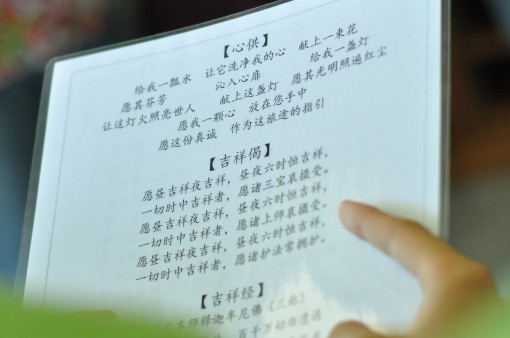 【心供】
给我一瓢水 让它洗净我的心 献上一束花
愿其芬芳 沁入心扉 给我一盏灯
让这灯火照亮世人 献上这盏灯 愿其光明照遍红尘
愿我一颗心 放在您手中
愿这份真诚 作为这旅途的指引
【吉祥偈】
愿昼吉祥夜吉祥，昼夜六时恒吉祥，
一切时中吉祥者，愿诸三宝哀摄受。
愿昼吉祥夜吉祥，昼夜六时恒吉祥，
一切时中吉祥者，愿诸上师哀摄受。
愿昼吉祥夜吉祥，昼夜六时恒吉祥，
一切时中吉祥者，愿诸护法常拥护。
【吉祥经】
师释迦牟尼佛（三称）
百千万劫难遭遇